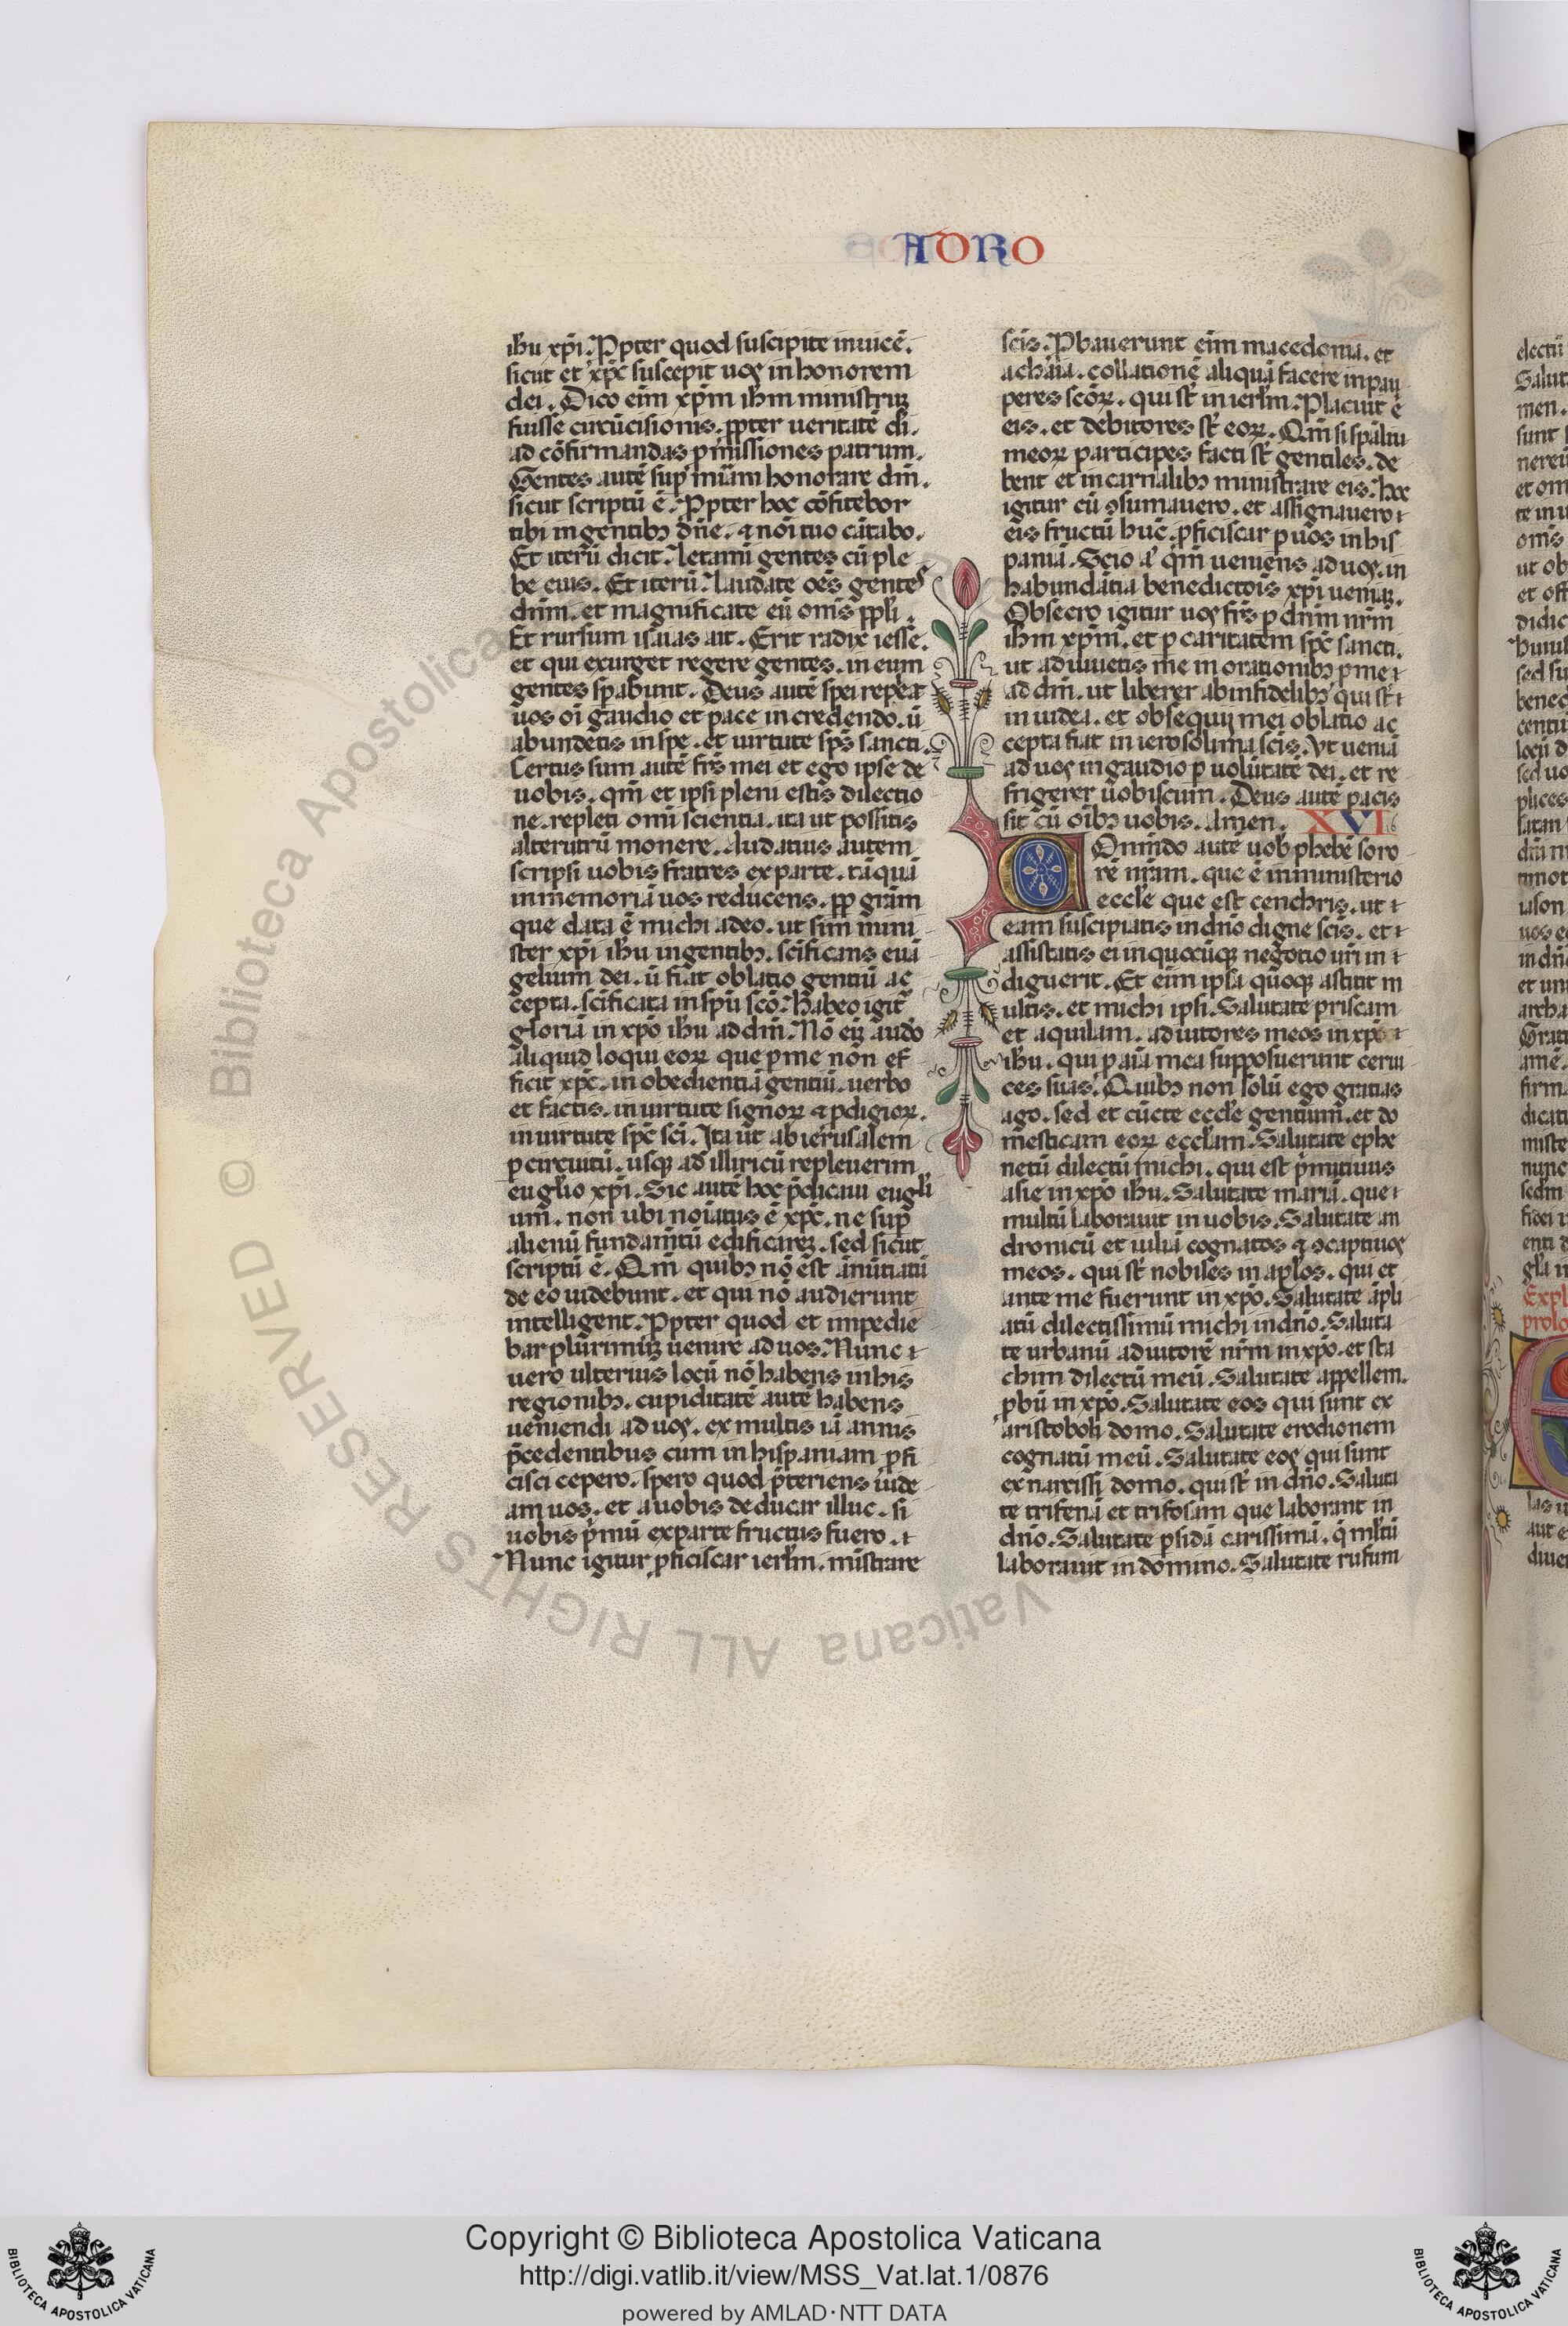 ADRO
ihu xp̄i. Ppter quod suscipite inuicē.
sicut et xp̄c suscepit uos in honorem
dei. Dico eim xp̄m ihm ministrū
fuisse circūcisionis. ppter ueritatē di.
ad cōfirmandas pmissiones patrum.
Gentes autē sup miam honorare dm̄.
sicut scriptū ē. Ppter hoc cōfitebor
tibi in gentibꝫ dn̄e. ⁊ nōi tuo cātabo.
Et iterū dicit. letamī gentes cū ple
be eius. Et iterū. laudate oēs gentes
dnm̄. et magnificate eū omīs ppli.
Et rursum isaias ait. Erit radix iesse.
et qui exurget regere gentes. in eum
gentes spabunt. Deus autē spei repleat
uos oī gaudio et pace in credendo. ū
abundetis in spe. et uirtute sps̄ sancti.
Certus sum autē frs̄ mei et ego ipse de
uobis. qm̄ et ipsi pleni estis dilectio
ne. repleti omī scientia. ita ut possitis
alterutrū monere. Audatius autem
scripsi uobis fratres ex parte. tāquā
in memoriā uos reducens. pp grām
que data ē michi a deo. ut sim mini
ster xp̄i ihu in gentibꝫ. scīficans euā
gelium dei. ū fiat oblatio gentiū ac
cepta. scīficata in spū scō. habeo igit̄
gloriā in xpō ihu ad dm̄. Nō eꝫ audo
aliquid loqui eoꝝ que p me non ef
ficit xp̄c. in obedientiā gentiū. uerbo
et factis. in uirtute signoꝝ ⁊ pdigioꝝ.
in uirtute spc̄ scī. Ita ut ab ierusalem
p circuitū. usqꝫ ad illiricū repleuerim
euglīo xp̄i. Sic autē hoc p̄dicaui euglī
um. non ubi noīatus ē xp̄c. ne sup
alienū fundamtū edificareꝫ. sed sicut
scriptū ē. Qm̄ quibꝫ nō est ānūtiatū
de eo uidebunt. et qui nō audierunt
intelligent. Ppter quod et impedie
bar plurimuꝫ uenire ad uos. Nunc ⁊
uero ulterius locū nō habens in his
regionibꝫ. cupiditatē autē habens
ueniendi ad uos. ex multis iā annis
p̄cedentibus cum in hispaniam pfi
cisci cepero. spero quod p̄teriens uide
am uos. et a uobis deducar illuc. si
uobis p̄mū ex parte fructus fuero. ⁊
Nunc igitur pficiscar ierlm̄. mīstrare
scīs. Pbauerunt eim macedonia. et
achaia. collationē aliquā facere in pau
peres scōꝝ. qui st̄ in ierlm̄. Placuit ē
eis. et debitores st̄ eoꝝ. Qm̄ si spāliū
meoꝝ participes facti st̄ gentiles. de
bent et in carnalibꝫ ministrare eis. hoc
igitur cū ꝯsumauero. et assignauero ⁊
eis fructū huc̄. pficiscar p uos in his
paniā. Scio a' qm̄ ueniens ad uos. in
habundātia benedictōis xp̄i ueniaꝫ.
Obsecro igitur uos frs̄ p dnm̄ nrm̄
ihm xp̄m. et p caritatem spc̄ sancti.
ut adiuuetis me in orationibꝫ p me ⁊
ad dm̄. ut liberer ab infidelibꝫ qui st̄ ⁊
in iudea. et obsequii mei oblatio ac
cepta fiat in ierosolima scīs. Vt ueniā
ad uos in gaudio p uolūtatē dei. et re
frigerer uobiscum. Deus autē pacis
sit cū oībꝫ uobis. Amen. XVI
Omīdo autē uob phebē soro
rē nrām. que ē in ministerio
eccl̄e que est cenchris. ut ⁊
eam suscipiatis in dn̄o digne scīs. et ⁊
assistatis ei in quocūqꝫ negotio uri in ⁊
diguerit. Et eim ipsa quoqꝫ astitit m
ultis. et michi ipsi. Salutate priscam
et aquilam. adiutores meos in xpō ⁊
ihu. qui p aīa mea supposuerunt cerui
ces suas. Quibꝫ non solū ego gratias
ago. sed et cūcte eccl̄e gentium. et do
mesticam eoꝝ eccl̄am. Salutate ephe
netū dilectū michi. qui est p̄mitiuus
asie in xpō ihu. Salutate mariā. que ⁊
multū laborauit in uobis. Salutate an
dronicū et iuliā cognatos ⁊ ꝯcaptiuos
meos. qui st̄ nobiles in aplos̄. qui et
ante me fuerunt in xpō. Salutate āpli
atū dilectissimū michi in dn̄o. Saluta
te urbanū adiutorē nrm̄ in xpō. et sta
chim dilectū meū. Salutate appellem.
pbū in xpō. Salutate eos qui sunt ex
aristoboli domo. Salutate erodionem
cognatū meū. Salutate eos qui sunt
ex narcissi domo. qui st̄ in dn̄o. Saluta
te trifenā et trifosam que laborant in
dn̄o. Salutate psidā carissimā. q mltū
laborauit in domino. Salutate rufum
Copyright © Biblioteca Apostolica Vaticana
http://digi.vatlib.it/view/MSS_Vat.lat.1/0876
powered by AMLAD·NTT DATA
© Biblioteca Apostolica Vaticana ALL RIGHTS RESERVED
BIBLIOTECA APOSTOLICA VATICANA
BIBLIOTECA APOSTOLICA VATICANA